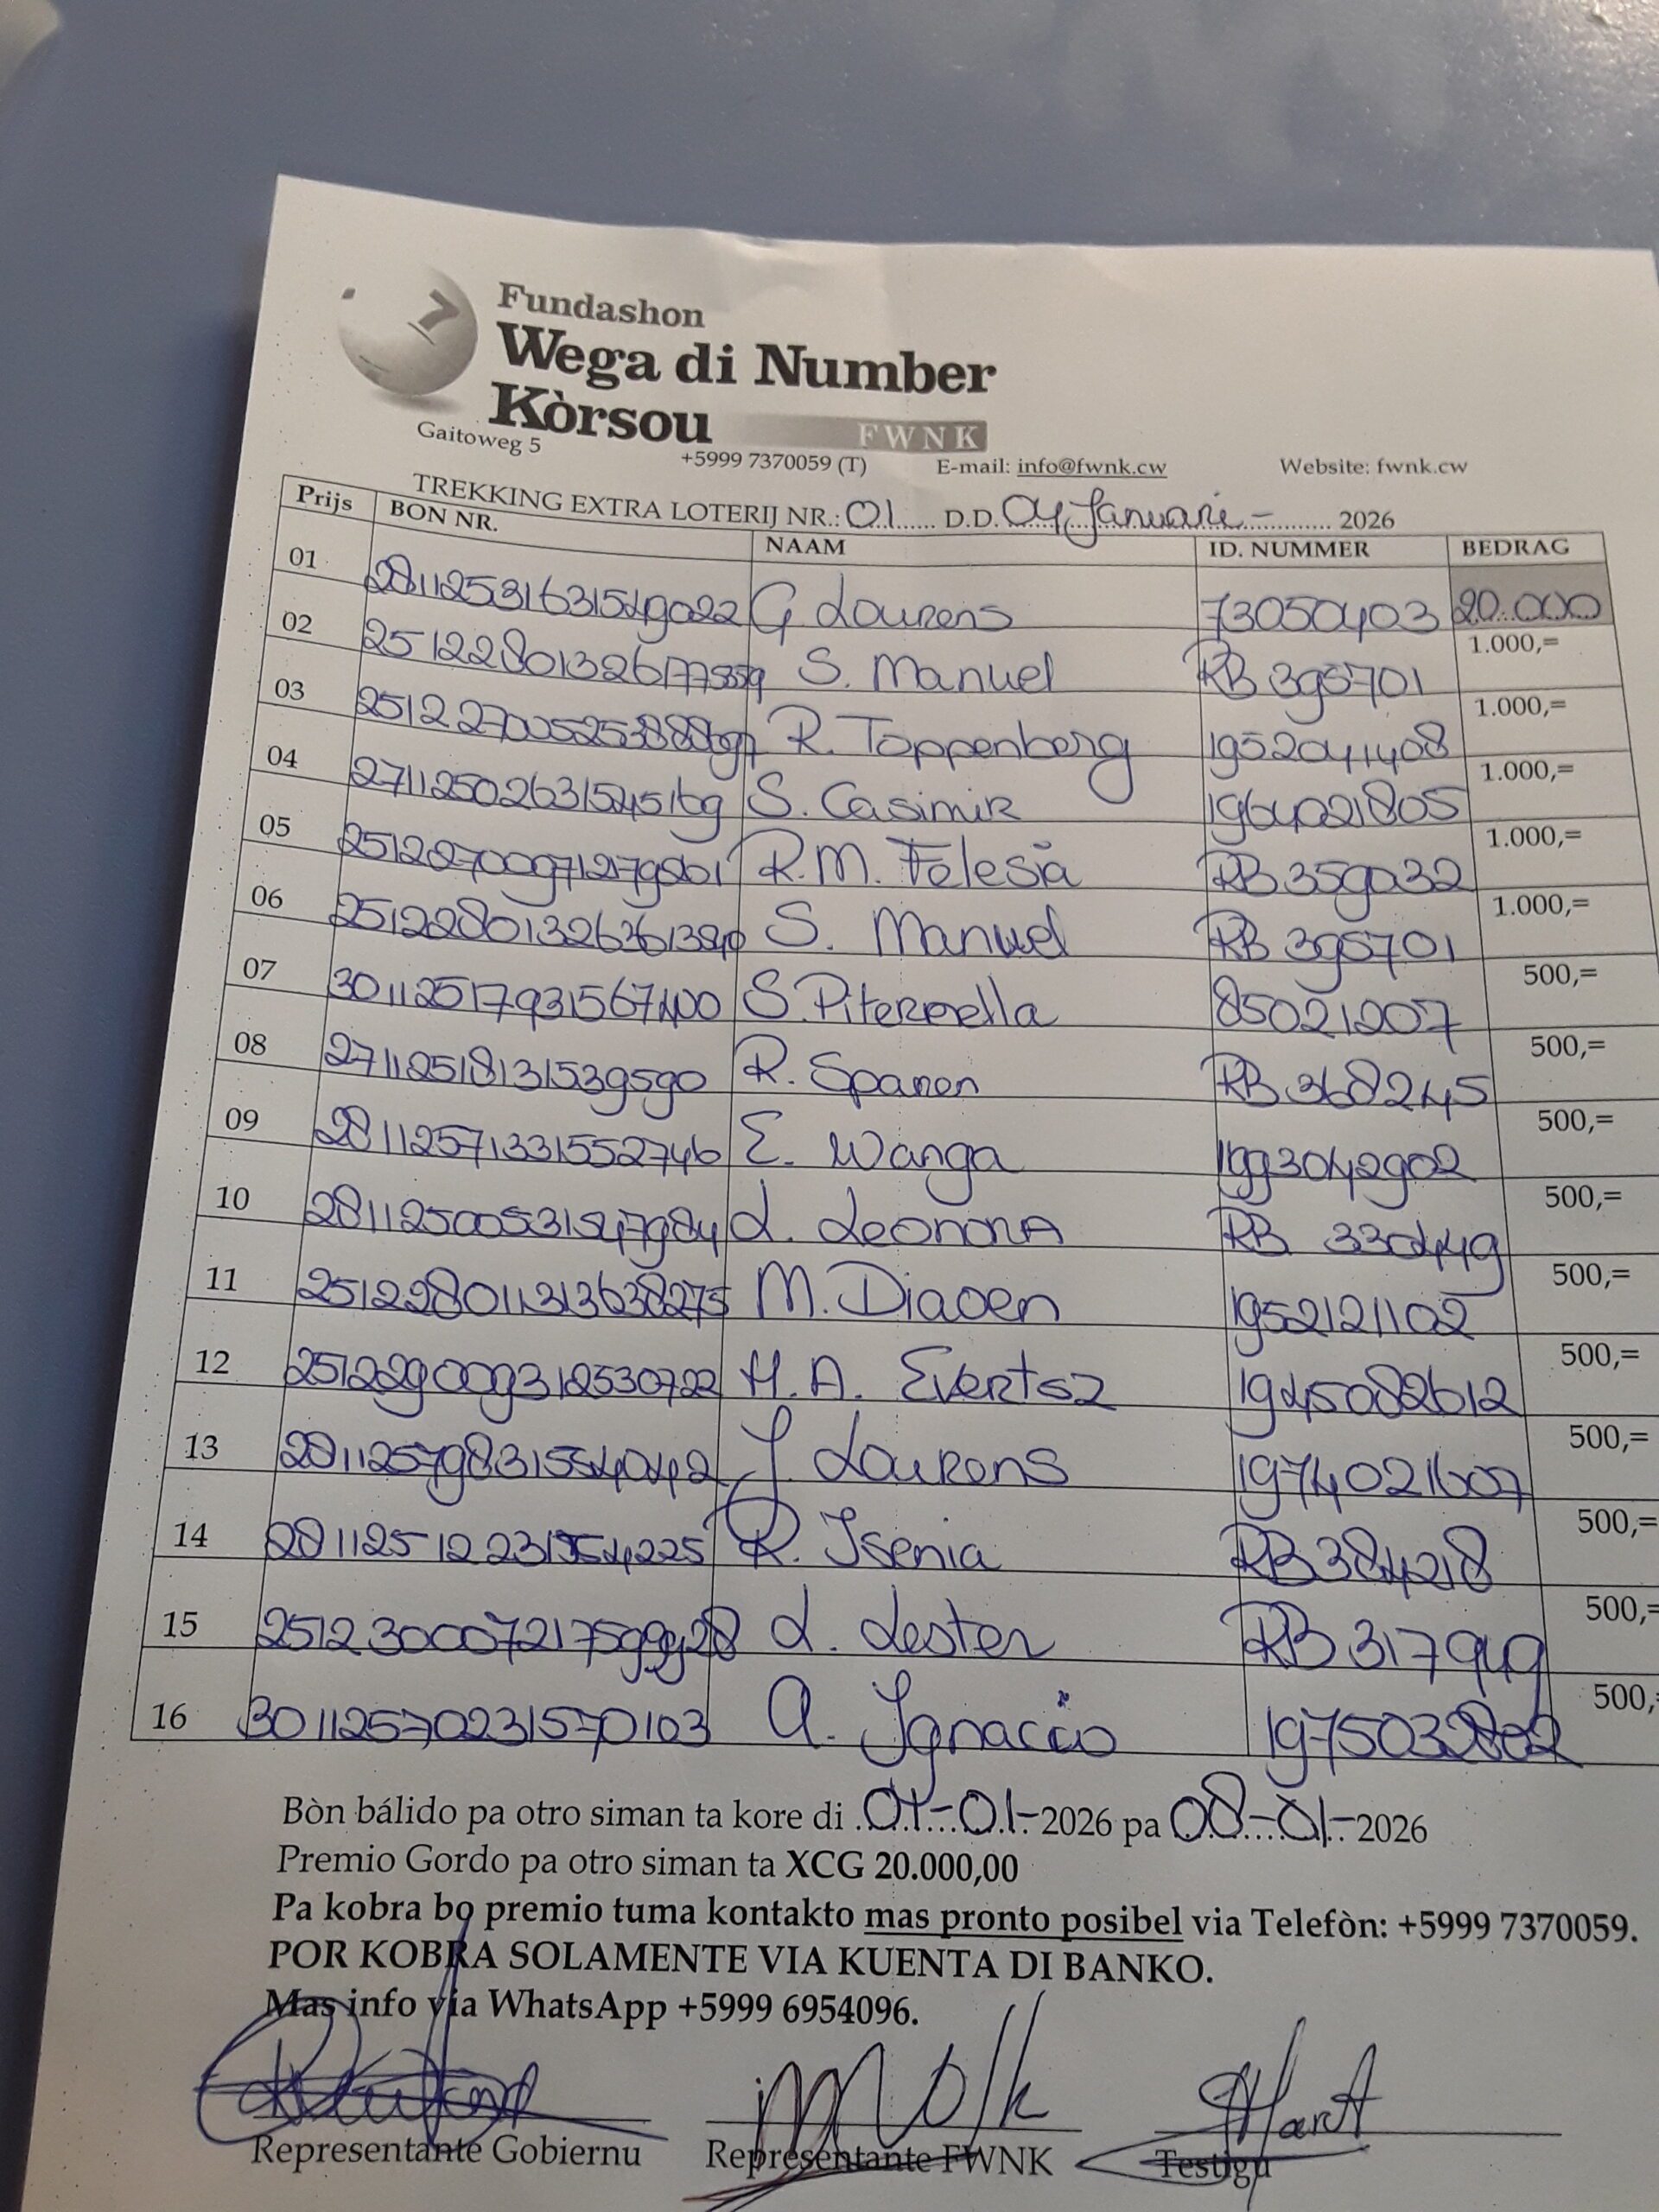 7
Fundashon
Wega di Number
Kòrsou
FWNK
Gaitoweg 5 +5999 7370059 (T) E-mail: info@fwnk.cw Website: fwnk.cw
TREKKING EXTRA LOTERIJ NR.: 01 D.D. 04 Januari - 2026
Prijs BON NR. NAAM ID. NUMMER BEDRAG
01 G Lourens 73050403 20.000
02 S. Manuel RB 395701 1.000,=
03 R. Toppenberg 1952041408 1.000,=
04 S. Casimir 1964021805 1.000,=
05 R.M. Felesia RB 359032 1.000,=
06 S. Manuel RB 395701 1.000,=
07 30112517931567400 85021207 500,=
08 27112518131539590 R. Spanen RB 368245 500,=
09 28112571331552746 E. Wanga 1993042902 500,=
10 28112500531547984 L. Leonora RB 330449 500,=
11 M. Diaoen 1952121102 500,=
12 251229009312530722 H.A. Evertsz 1945082612 500,=
13 28112579831554042 J. Lourens 1974021607 500,=
14 R. Isenia RB384218 500,=
15 L. Lester 500,=
16 30112570231570103 A. Ignacio 500,=
Bòn bálido pa otro siman ta kore di -01-2026 pa 08-01-2026
Premio Gordo pa otro siman ta XCG 20.000,00
Pa kobra bo premio tuma kontakto mas pronto posibel via Telefòn: +5999 7370059.
POR KOBRA SOLAMENTE VIA KUENTA DI BANKO.
Mas info via WhatsApp +5999 6954096.
Representante Gobiernu Representante FWNK Testigu